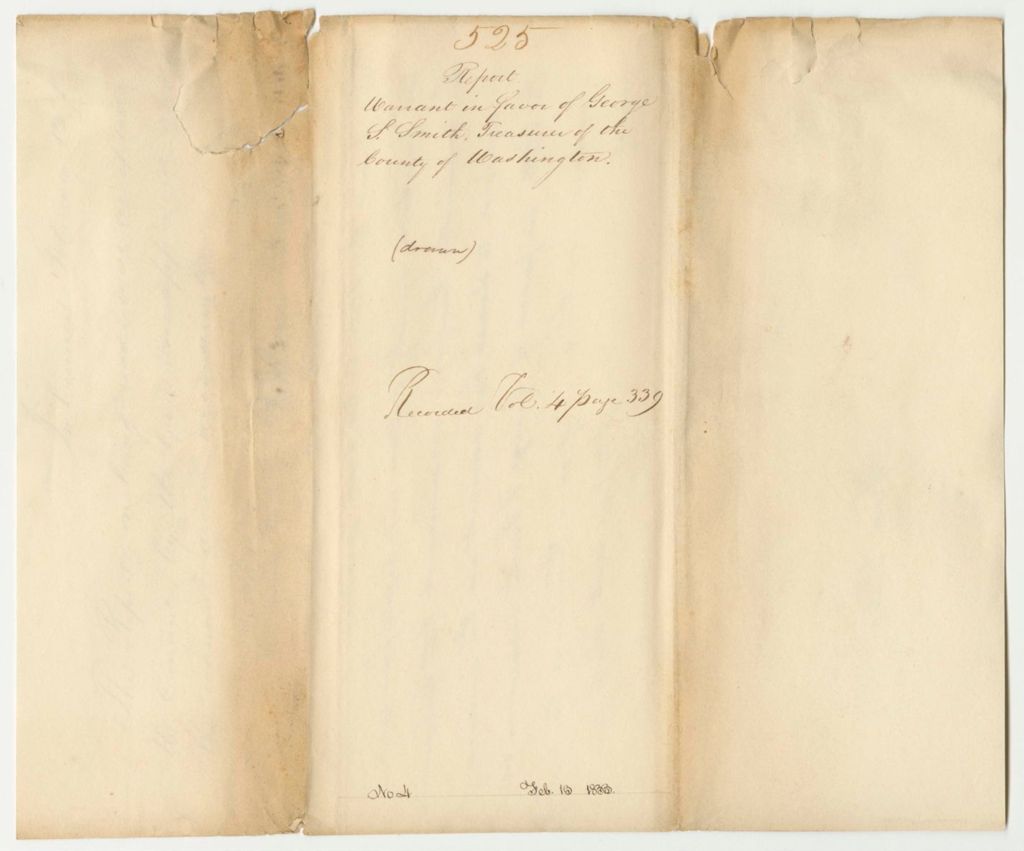 525
Report
Warrant in favor of George
S. Smith, Treasurer of the
County of Washington.
(drawn)
Recorded Vol. 4 page 339
No 4 Feb. 13 1833.